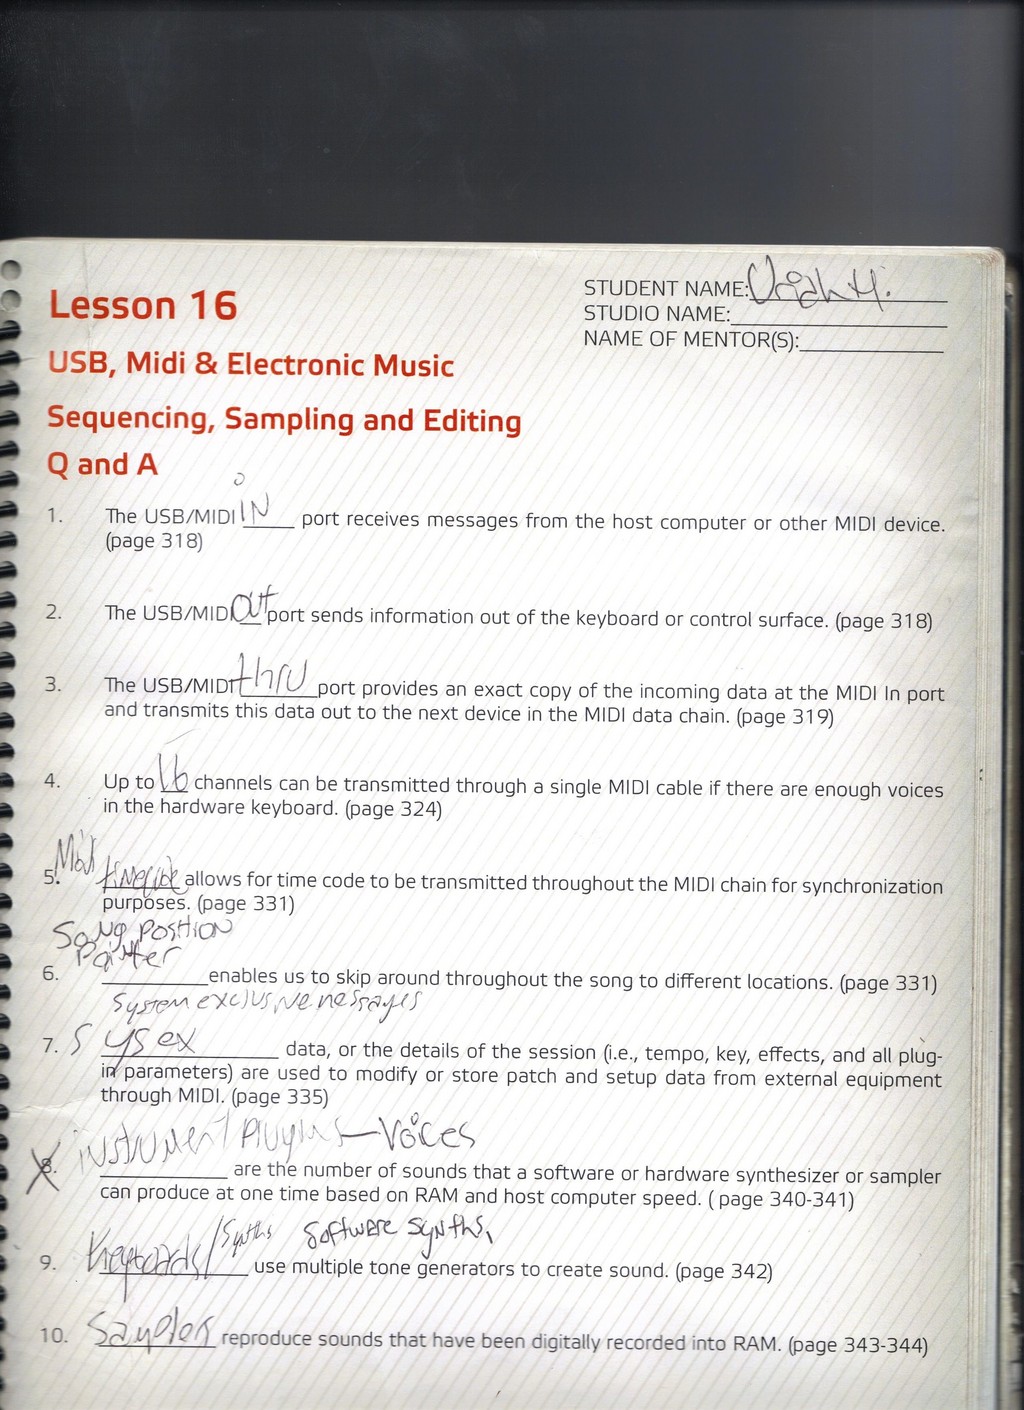 STUDENT NAME: Uriah H.
STUDIO NAME:
NAME OF MENTOR(S):
Lesson 16
USB, Midi & Electronic Music
Sequencing, Sampling and Editing
Q and A
1. The USB/MIDI IN port receives messages from the host computer or other MIDI device.
(page 318)
2. The USB/MIDI out port sends information out of the keyboard or control surface. (page 318)
3. The USB/MIDI thru port provides an exact copy of the incoming data at the MIDI In port
and transmits this data out to the next device in the MIDI data chain. (page 319)
4. Up to 16 channels can be transmitted through a single MIDI cable if there are enough voices
in the hardware keyboard. (page 324)
Midi
5. timecode allows for time code to be transmitted throughout the MIDI chain for synchronization
purposes. (page 331)
Song Position
Pointer
6. enables us to skip around throughout the song to different locations. (page 331)
System exclusive messages
7. Sysex data, or the details of the session (i.e., tempo, key, effects, and all plug-
in parameters) are used to modify or store patch and setup data from external equipment
through MIDI. (page 335)
instrument Plugins - Voices
8. are the number of sounds that a software or hardware synthesizer or sampler
can produce at one time based on RAM and host computer speed. ( page 340-341)
Synths Software Synths,
9. Keyboards/ use multiple tone generators to create sound. (page 342)
10. Samplers reproduce sounds that have been digitally recorded into RAM. (page 343-344)